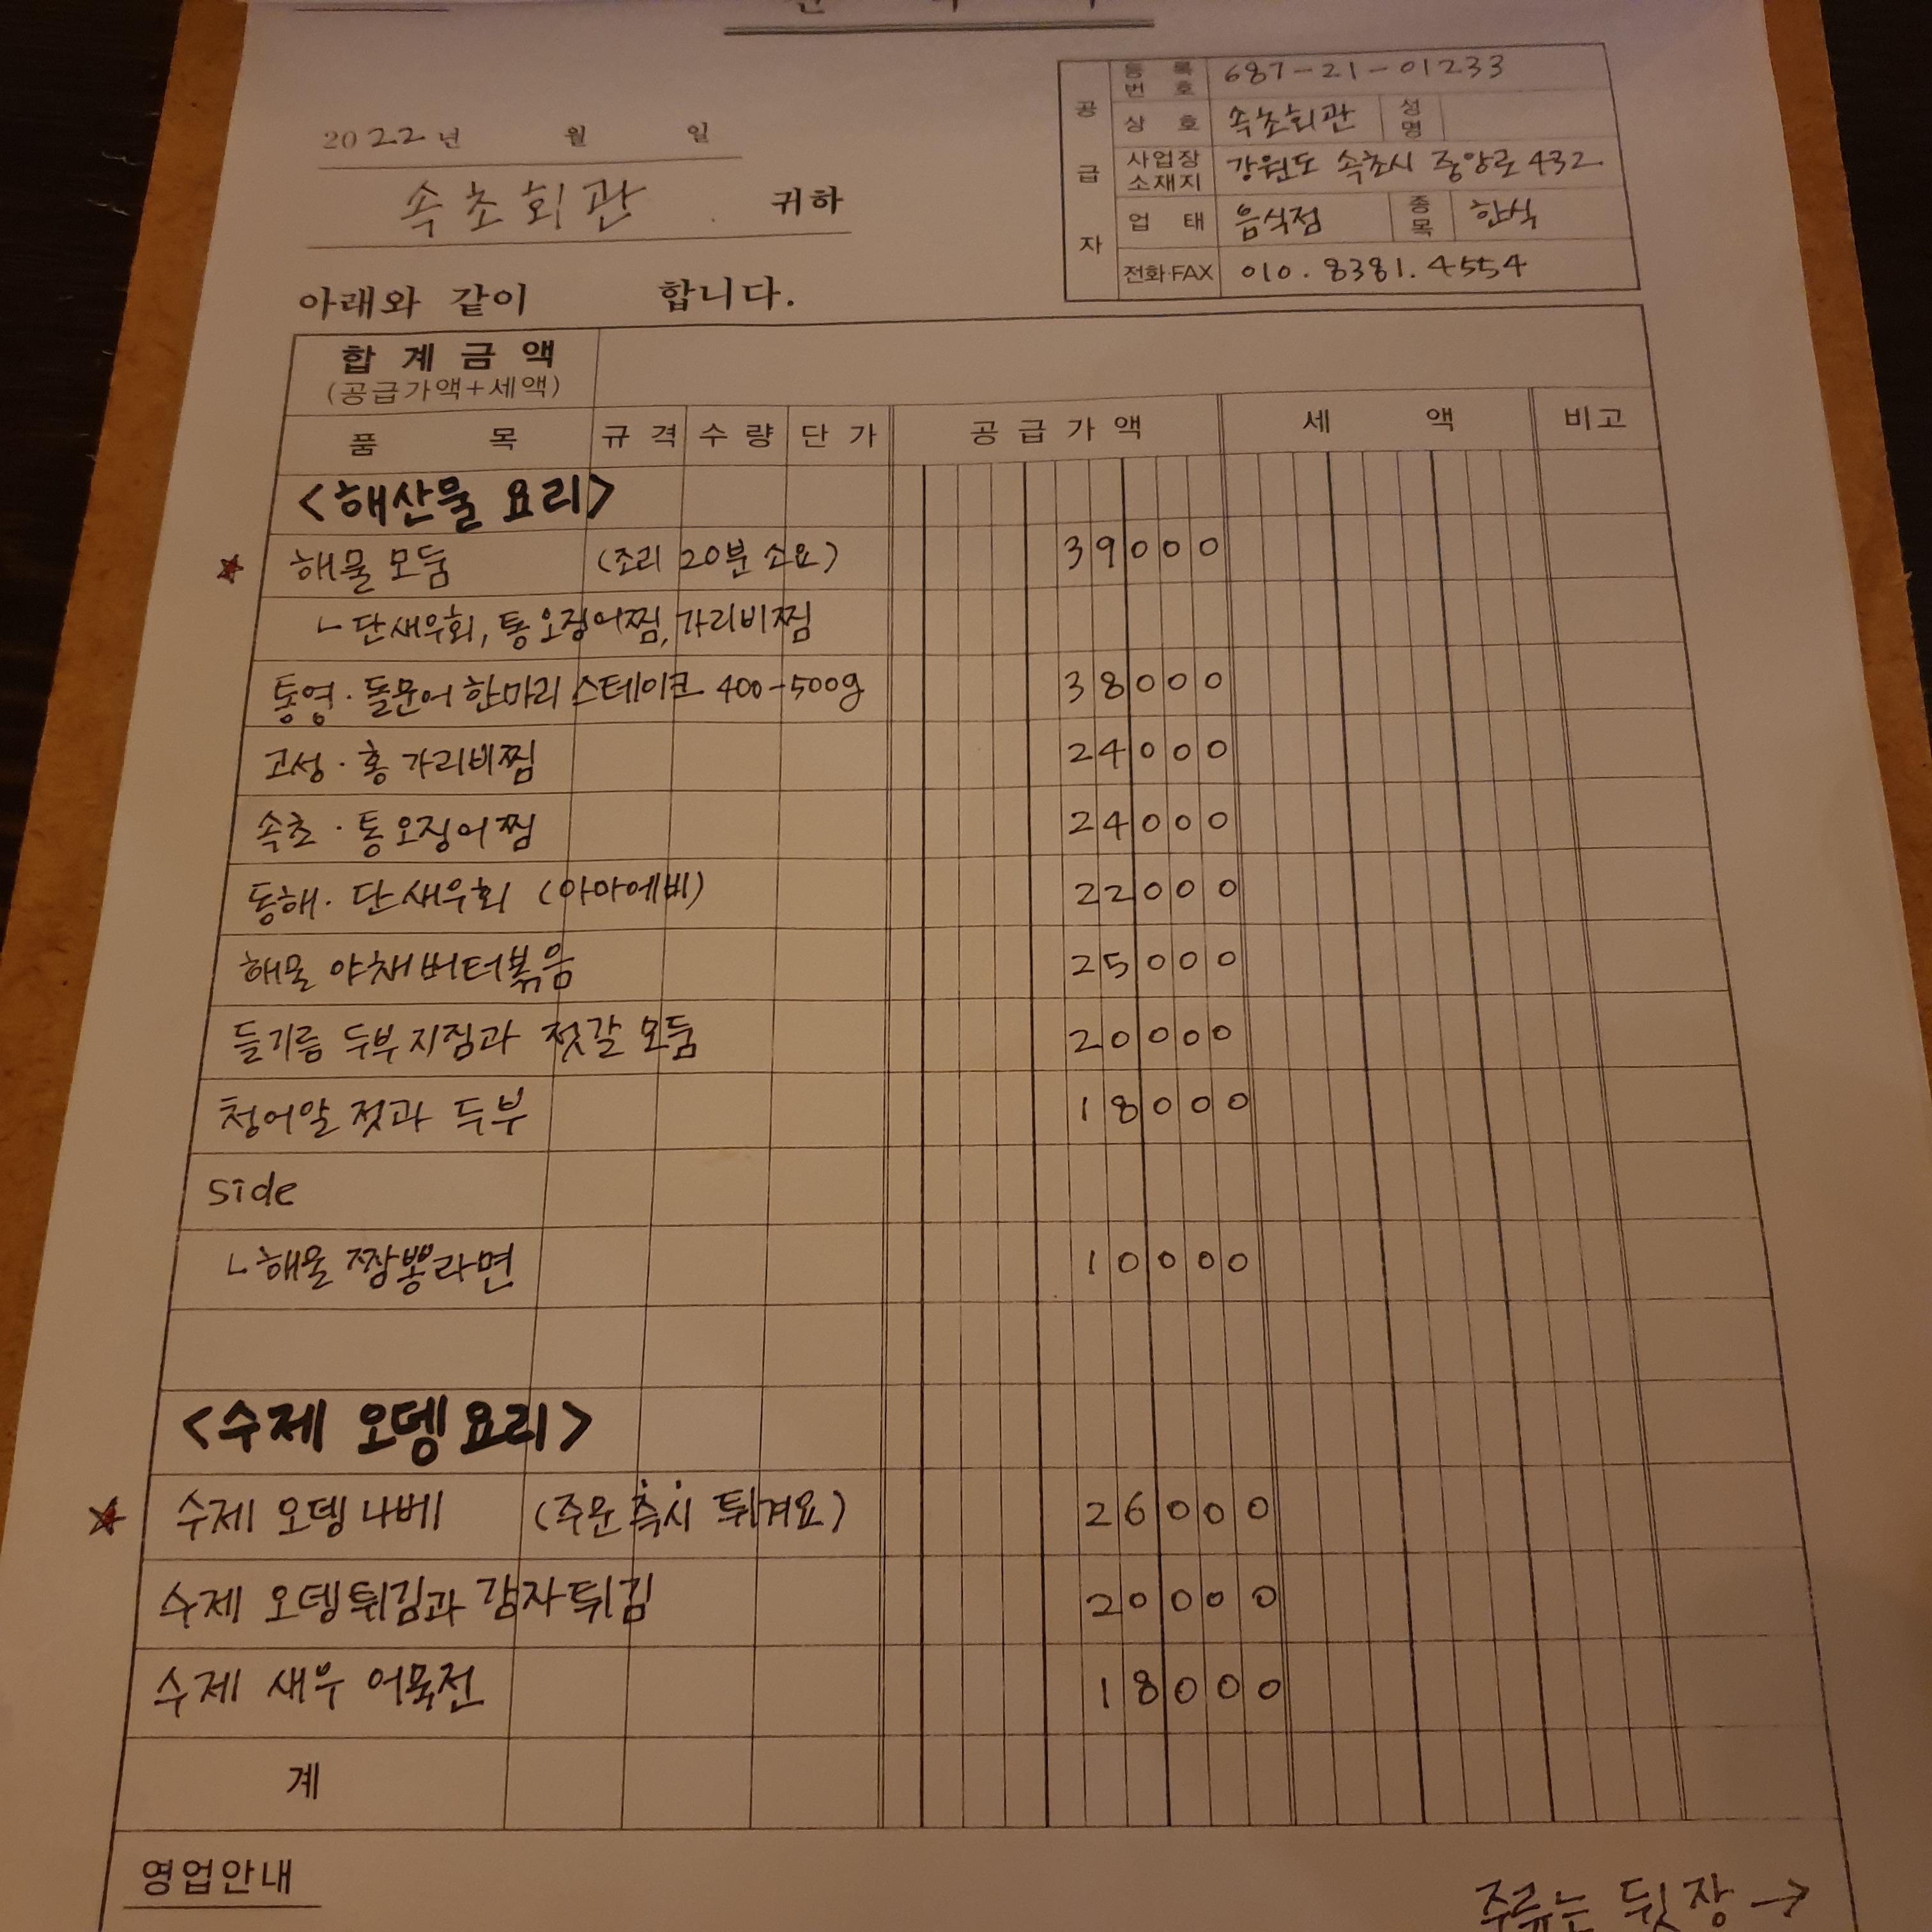 등록번호 687-21-01233
2022년 월 일
상호 속초회관 성명
속초회관 귀하
공급자
사업장소재지 강원도 속초시 중앙로 432
업태 음식점 종목 한식
전화·FAX 010. 8381. 4554
아래와 같이 합니다.
합계금액
(공급가액+세액)
품목 규격 수량 단가 공급가액 세액 비고
<해산물 요리>
★ 해물모둠 (조리 20분 소요) 39000
ㄴ단새우회, 통오징어찜, 가리비찜
통영·돌문어 한마리 스테이크 400-500g 38000
고성·홍가리비찜 24000
속초·통오징어찜 24000
동해·단새우회 (아마에비) 22000
해물 야채버터볶음 25000
들기름 두부지짐과 젓갈 모둠 20000
청어알 젓과 두부 18000
side
ㄴ해물 짬뽕라면 10000
<수제 오뎅요리>
★ 수제 오뎅나베 (주문 즉시 튀겨요) 26000
수제 오뎅튀김과 감자튀김 20000
수제 새우 어묵전 18000
계
영업안내
주류는 뒷장 →